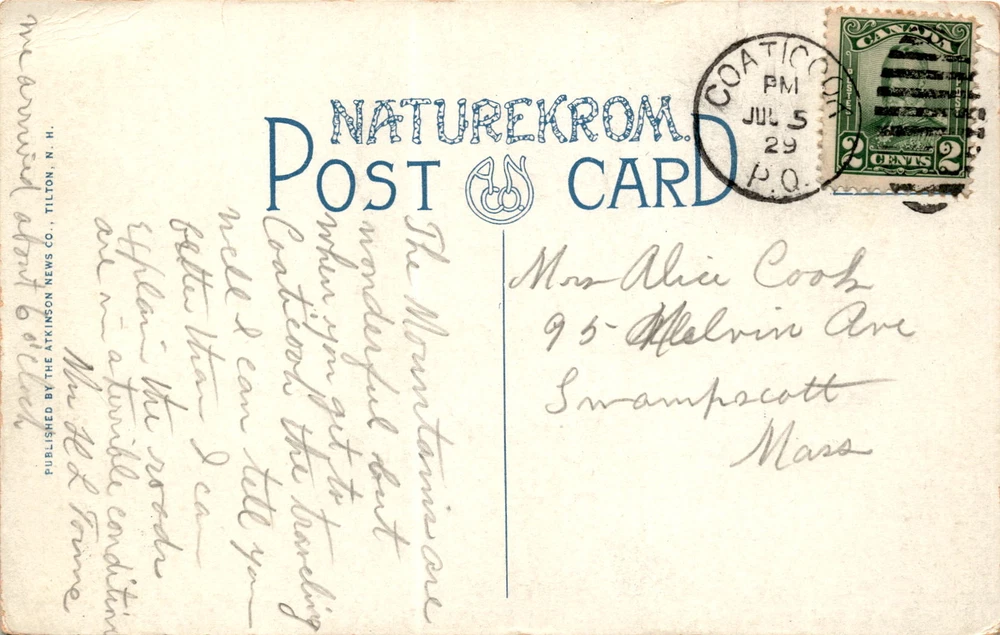 NATUREKROM.
POST CARD
COATICOOK
PM
JUL 5
29
P.Q.
CANADA
2 CENTS 2
The Mountains are
wonderful but
when you get to
Coaticook the traveling
well I can tell you
better than I can
Explain the roads
are in a terrible condition
Mr H L
we arrived about 6 o'clock
PUBLISHED BY THE ATKINSON NEWS CO., TILTON, N. H.
Mrs Alice Cook
95 Melvin Ave
Swampscott
Mass